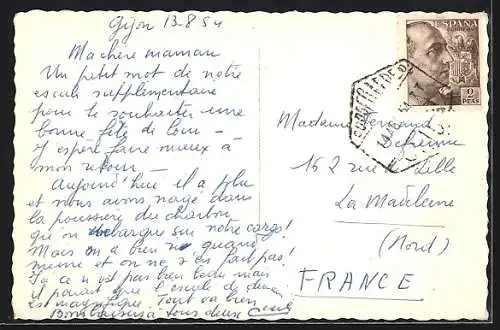 Gijon 13.8.54
Ma chère maman
Un petit mot de notre
escale supplémentaire
pour te souhaiter une
bonne fête de loin -
J'espère faire mieux à
mon retour -
Aujourd'hui il a plu
et nous avons nagé dans
la poussière du charbon
qu'on embarque sur notre cargo!
Mais on a bien quand
meme et on ne s'en fait pas!
Ici ce n'est pas bien beau mais
il parait que l'escale de
est magnifique. Tout va bien
Bons baisers à tous deux
ESPAÑA
CORREOS
PTAS
CORREO AEREO
Madame Fernand
162 rue de Lille
La Madeleine
(Nord)
FRANCE